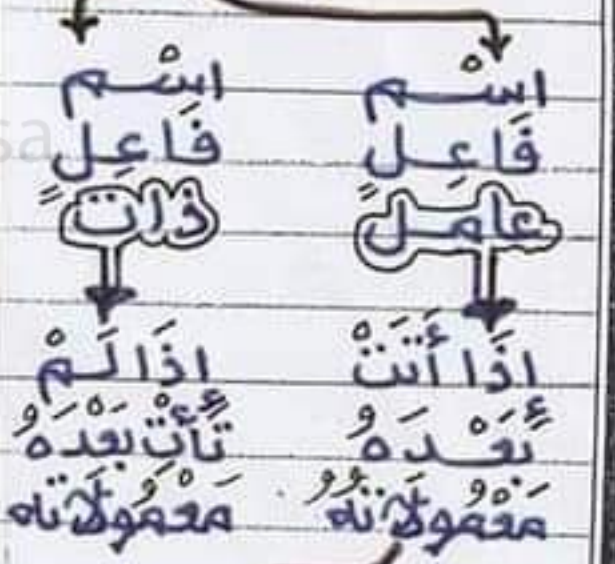 اسْم
فَاعِلٍ
عَامِلٍ
إِذَا أَتَتْ
بَعْدَهُ
مَعْمُولَاتُهُ
اسْم
فَاعِلٍ
ذَاتٍ
إِذَا لَمْ
تَأْتِ بَعْدَهُ
مَعْمُولَاتُهُ